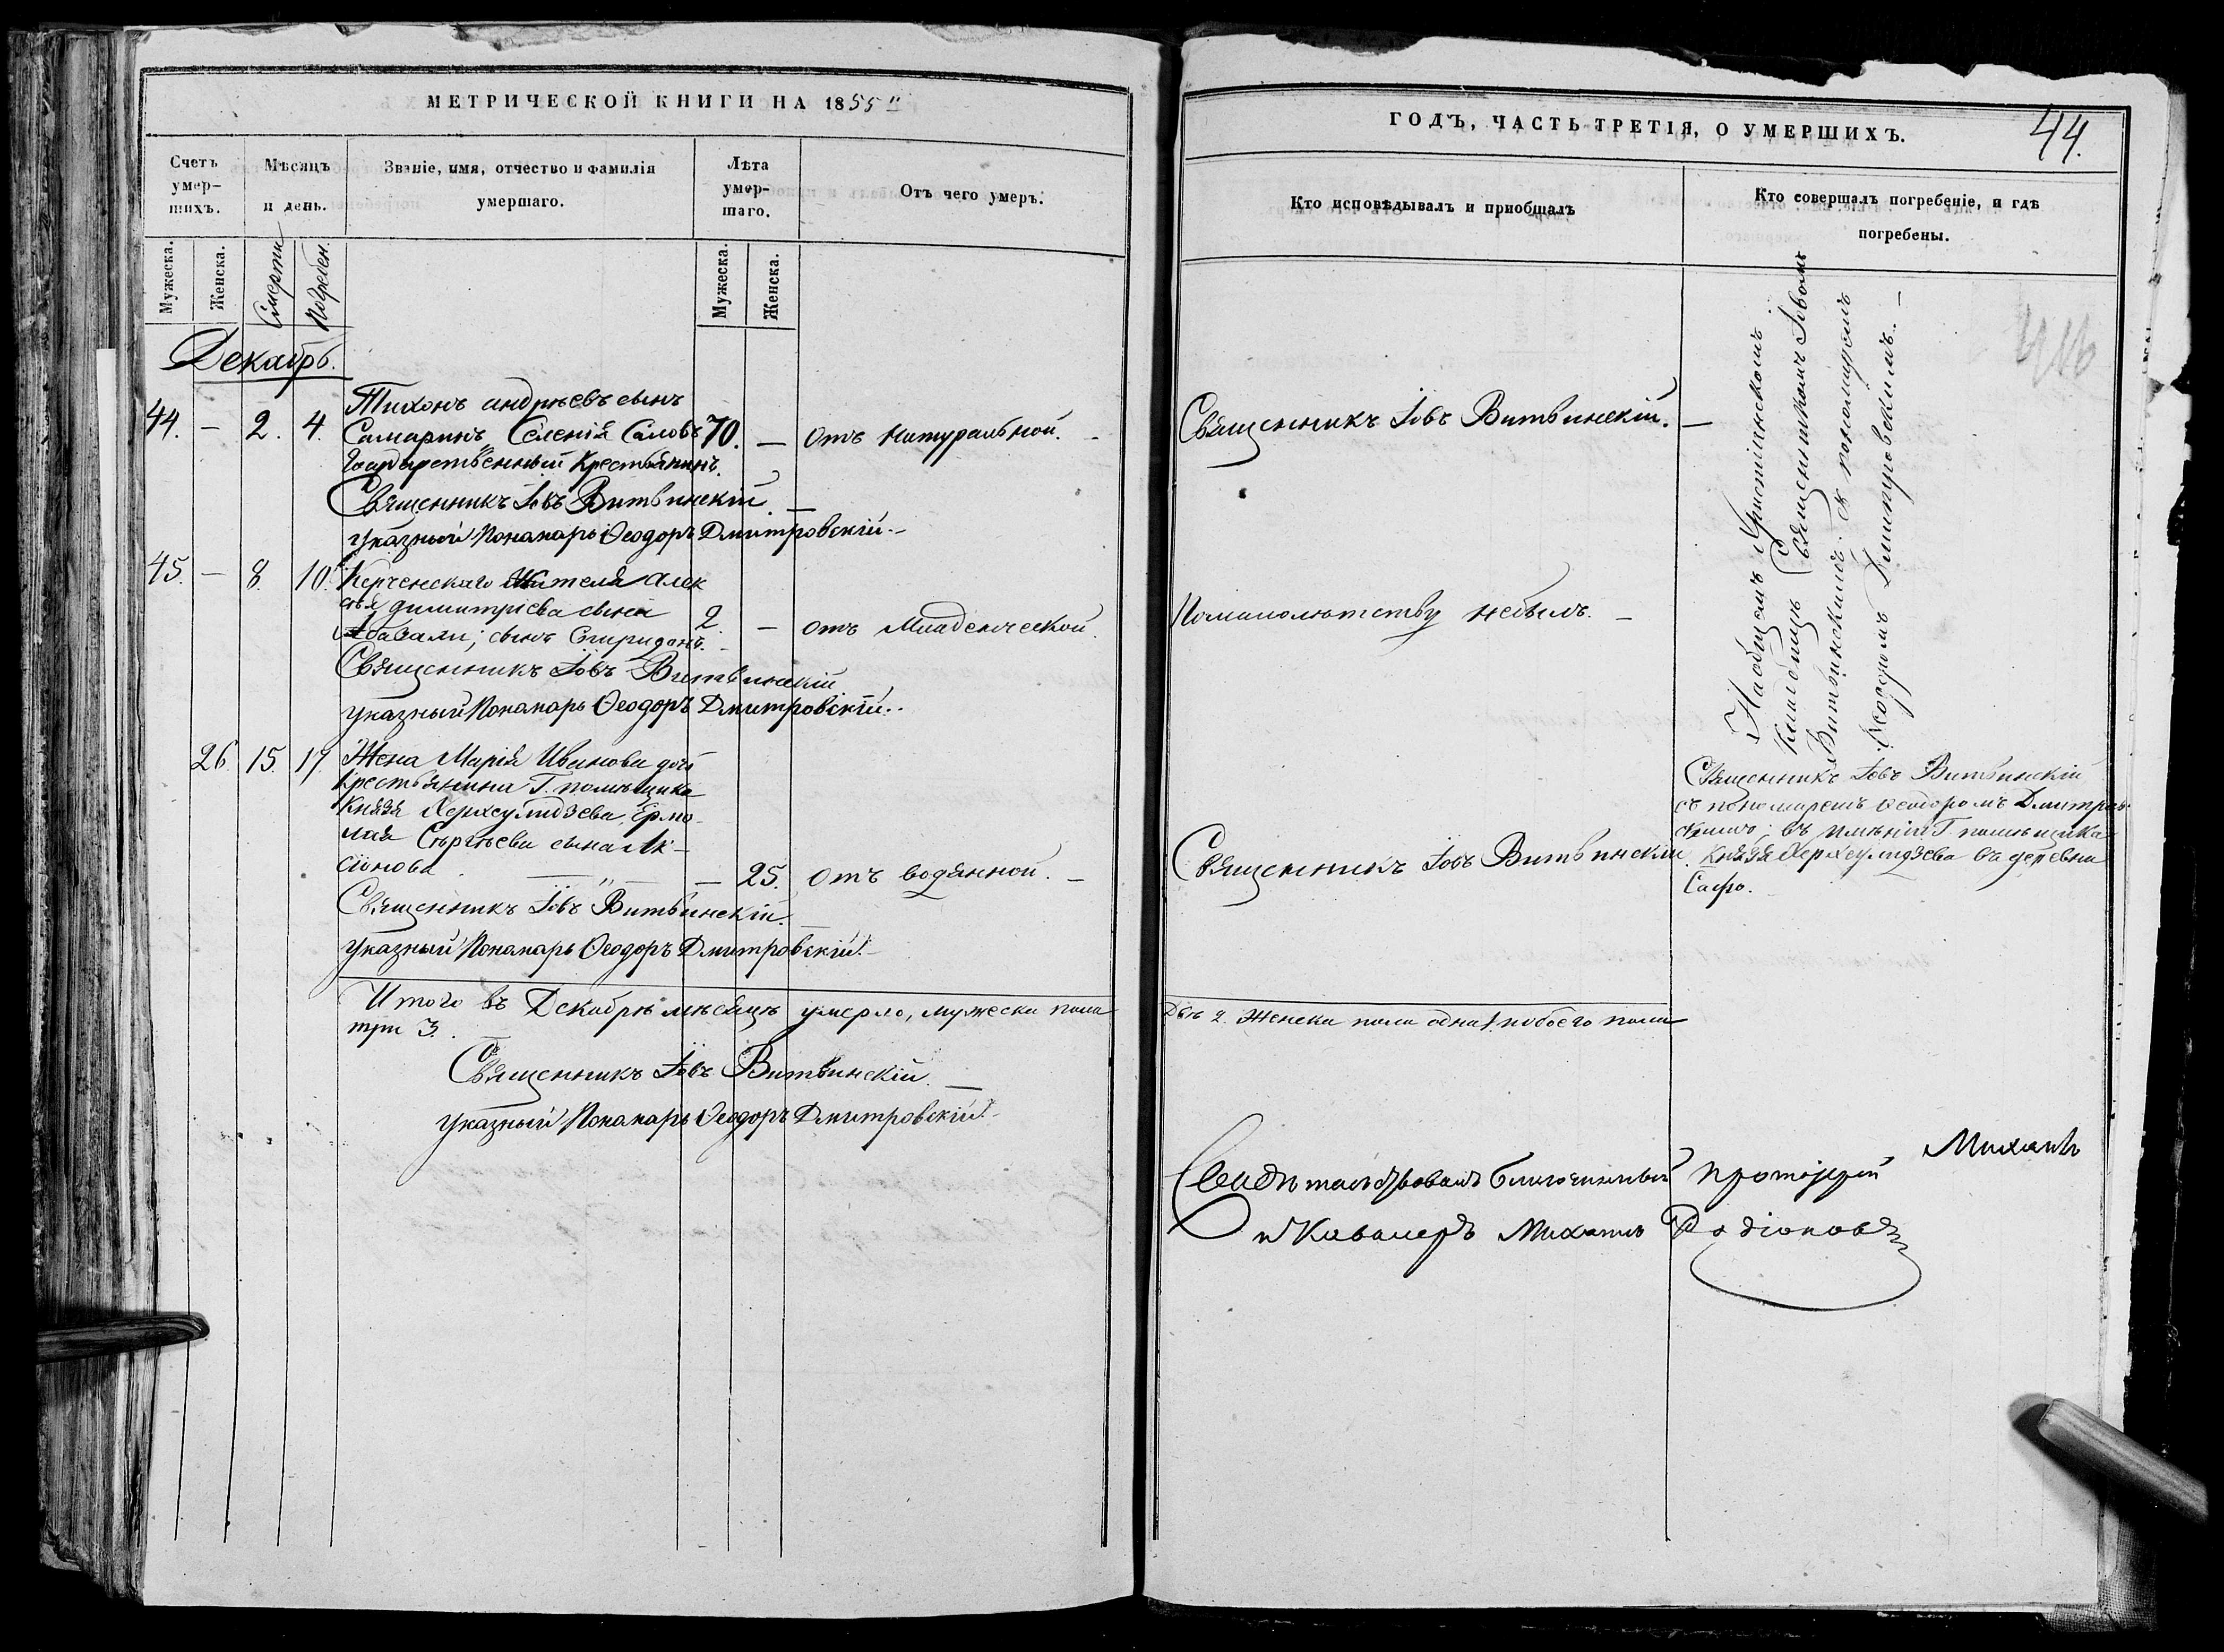 МЕТРИЧЕСКОЙ КНИГИ НА 1855
Счетъ умер-шихъ.
Мѣсяцъ и день.
Званіе, имя, отчество и фамилія умершаго.
Лѣта умер-шаго.
Отъ чего умеръ.
Мужеска.
Женска.
Смерти
Погребен.
Мужеска.
Женска.
Декабрь.
Тихонъ андрѣевъ сынъ
44. — 2. 4. Самаринъ, Селенія Саловъ 70. — Отъ Натуральной. —
Государственный Крестьянинъ.
Священникъ Іовъ Витвинскій. —
Указный Понамарь Ѳеодоръ Дмитровскій. —
45. — 8. 10. Керченскаго Жителя Алек
сѣя димитріева сына 2. — отъ Младенческой.
сынъ Спиридонъ.
Священникъ Іовъ Витвинскій
Указный Понамарь Ѳеодоръ Дмитровскій.
26. 15. 17. Жена Марія Иванова дочь
Крестьянина Г. помѣщика
Князя Херхеулидзева, Ермо-
лая Сѣргѣева сына
— 25. Отъ водянной. —
Священникъ Іовъ Витвинскій. —
Указный Понамарь Ѳеодоръ Дмитровскій. —
Итого въ Декабрѣ мѣсяцѣ умерло, мужеска пола
три 3.
Священникъ Іовъ Витвинскій. —
Указный Понамарь Ѳеодоръ Дмитровскій. —
ГОДЪ, ЧАСТЬ ТРЕТІЯ, О УМЕРШИХЪ.
44.
Кто исповѣдывалъ и пріобщалъ
Кто совершалъ погребеніе, и гдѣ
погребены.
Священникъ Іовъ Витвинскій. —
На общемъ Христіянскомъ
Кладбищѣ Священникомъ Іовомъ
Витвинскимъ съ пономаремъ
Ѳеодоромъ Дмитровскимъ. —
Помалолѣтству небылъ. —
Священникъ Іовъ Витвинскій
Священникъ Іовъ Витвинскій
съ пономаремъ Ѳеодоромъ Дмитров-
скимъ; въ имѣніи Г. помѣщика
Князя Херхеулидзева въ деревни
Сафо.
Два 2. Женска пола одна 1. и обоего пола
Свидѣтельствовалъ благочинный Протоіерей Михаилъ
и Кавалеръ Михаилъ Родіоновъ